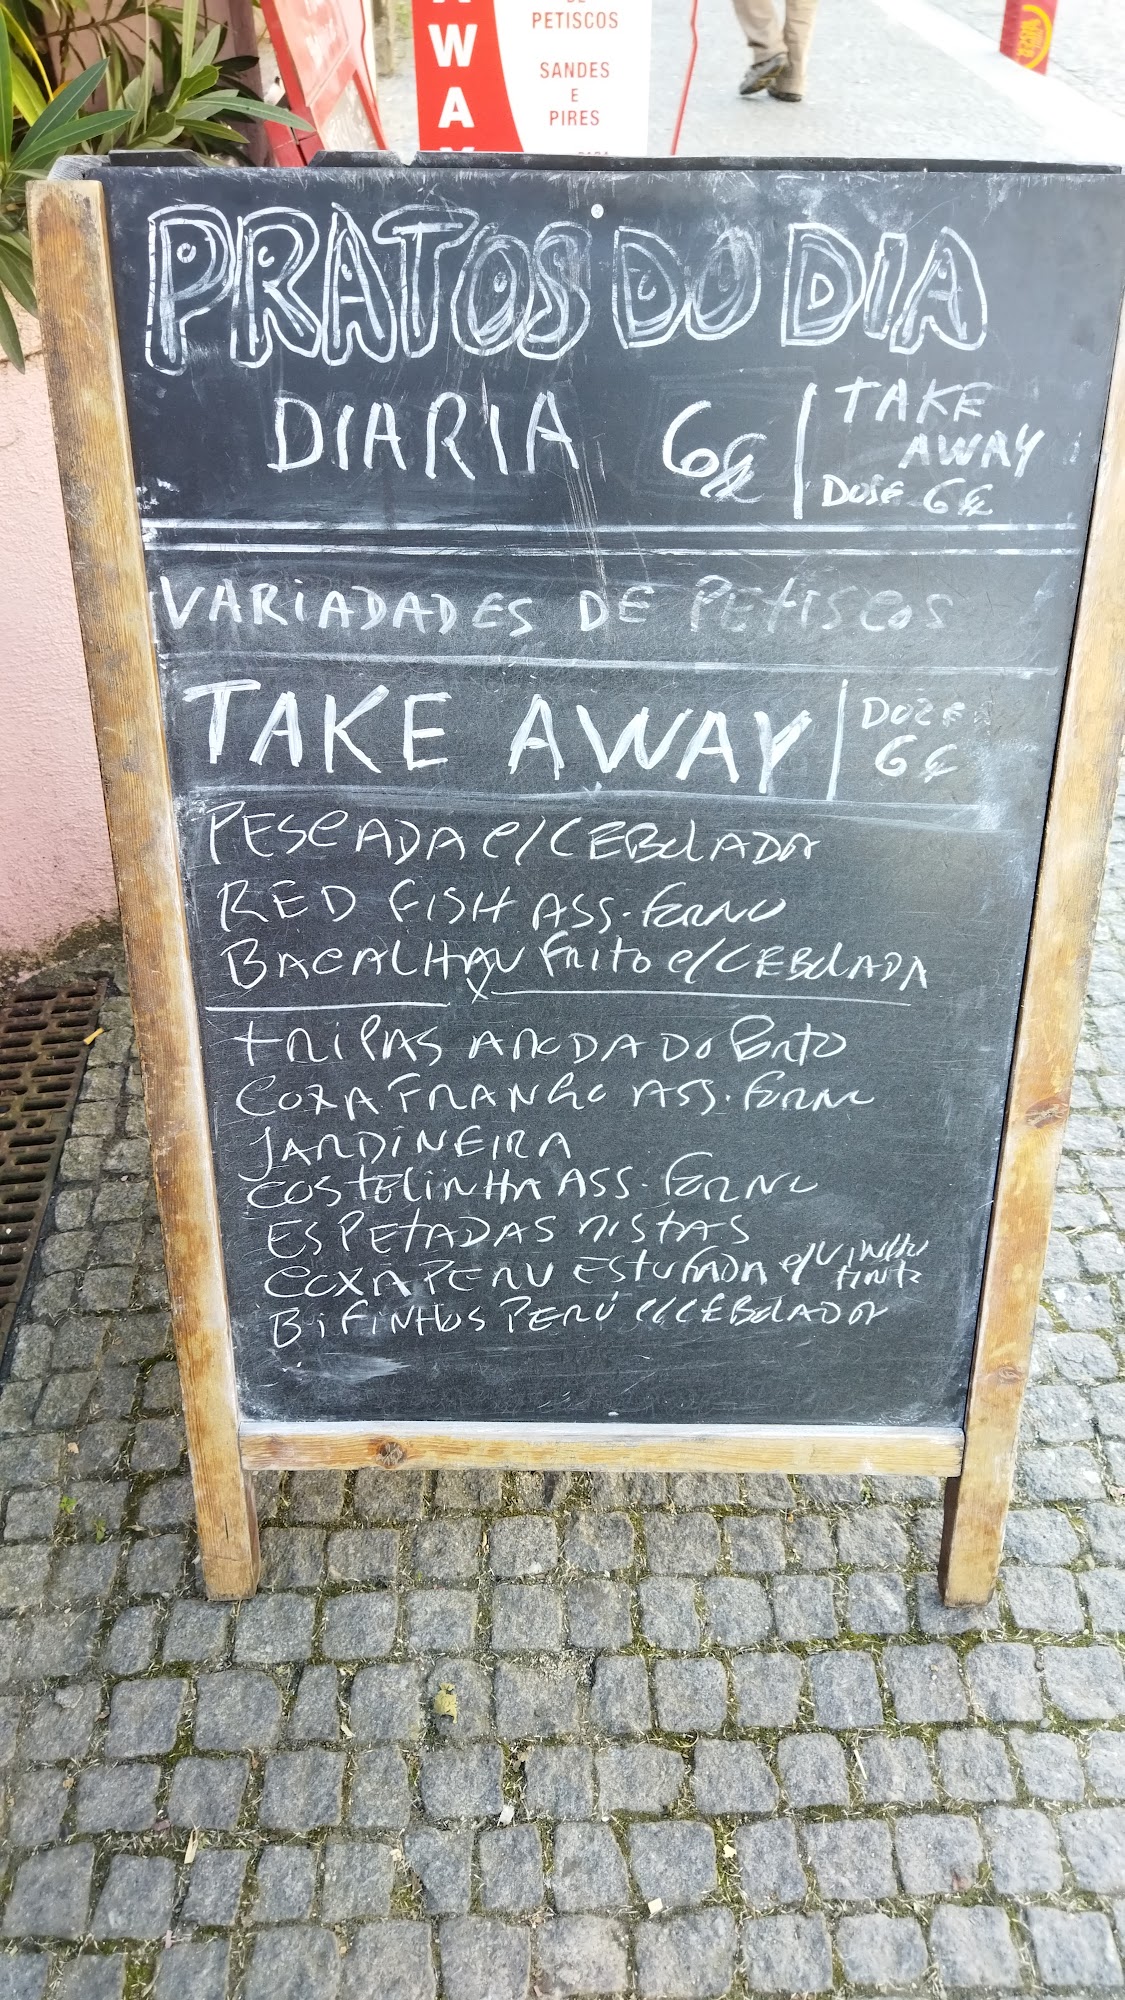 W
A
DE
PETISCOS
SANDES
E
PIRES
PRATOS DO DIA
DIARIA 6€ | TAKE
AWAY
DOSE 6€
VARIADADES DE PETISCOS
TAKE AWAY | DOZE
6€
PESCADA C/CEBOLADA
RED FISH ASS. FORNO
BACALHAU FRITO C/CEBOLADA
X
TRIPAS A MODA DO PORTO
COXA FRANGO ASS. FORNO
JARDINEIRA
COSTELINHA ASS. FORNO
ESPETADAS MISTAS
COXA PERU ESTUFADA C/VINHO
TINTO
BIFINHOS PERÚ C/CEBOLADA